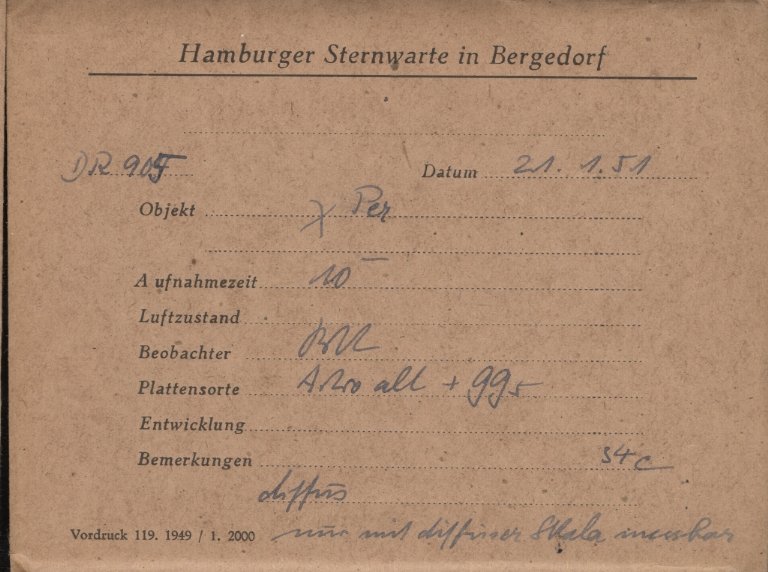 Hamburger Sternwarte in Bergedorf
DR 905
Datum 21. 1. 51
Objekt χ Per
Aufnahmezeit 10
Luftzustand
Beobachter
Plattensorte Astro alt + 99
Entwicklung
Bemerkungen 34c
diffus
Vordruck 119. 1949 / 1. 2000 nur mit diffuser Skala messbar